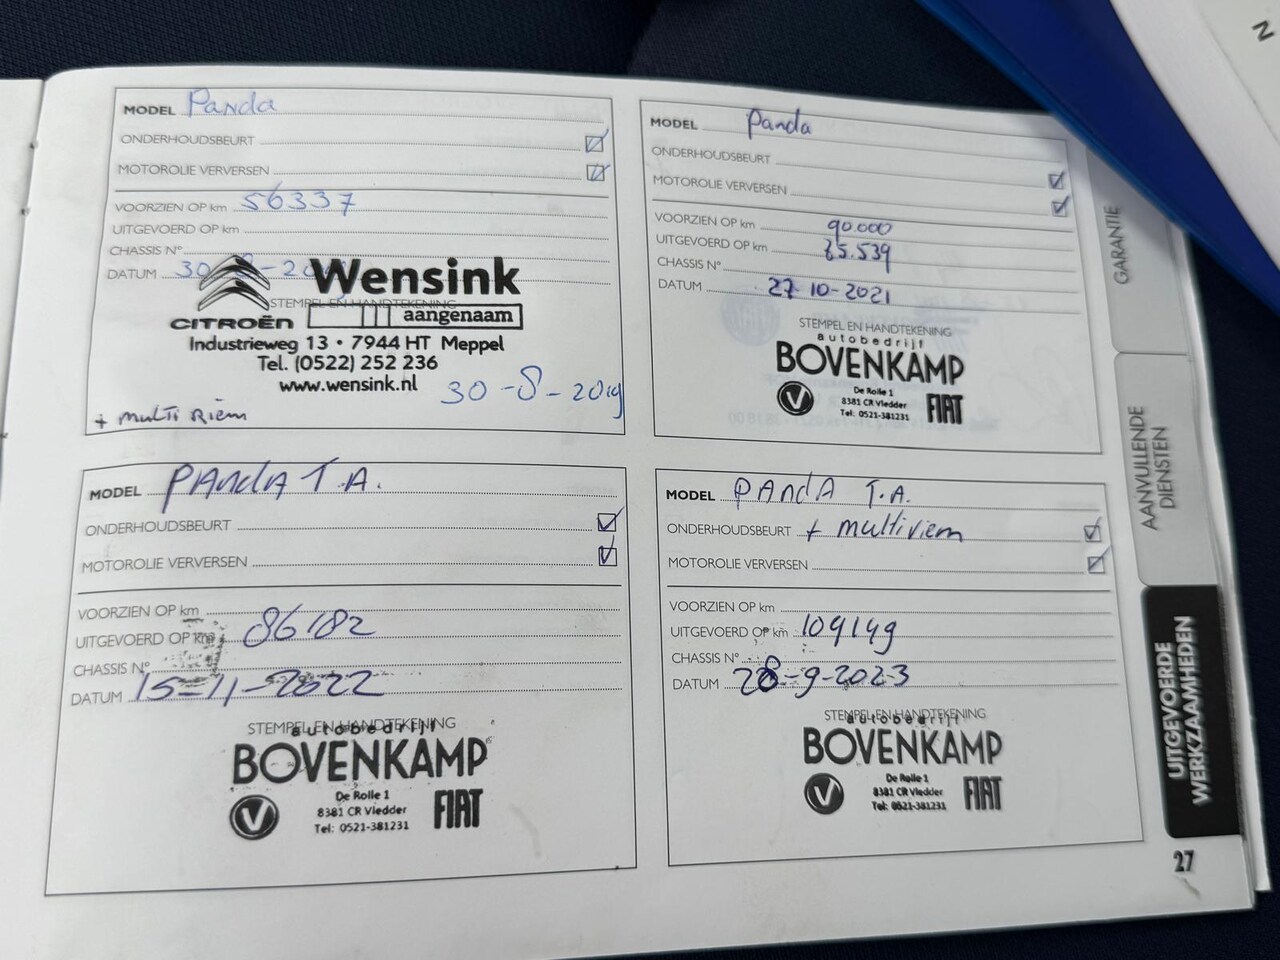 MODEL Panda
ONDERHOUDSBEURT
MOTOROLIE VERVERSEN
VOORZIEN OP km 56337
UITGEVOERD OP km
CHASSIS N°
DATUM 30-8-20
STEMPEL EN HANDTEKENING
CITROËN
Wensink
aangenaam
Industrieweg 13 • 7944 HT Meppel
Tel. (0522) 252 236
www.wensink.nl
30-8-2019
+ multi Riem
MODEL Panda
ONDERHOUDSBEURT
MOTOROLIE VERVERSEN
VOORZIEN OP km 90.000
UITGEVOERD OP km 75.539
CHASSIS N°
DATUM 27-10-2021
STEMPEL EN HANDTEKENING
autobedrijf
BOVENKAMP
V
De Rolle 1
8381 CR Vledder
Tel: 0521-381231
FIAT
MODEL PANdA T.A.
ONDERHOUDSBEURT
MOTOROLIE VERVERSEN
VOORZIEN OP km
UITGEVOERD OP km 86182
CHASSIS N°
DATUM 15-11-2022
STEMPEL EN HANDTEKENING
autobedrijf
BOVENKAMP
V
De Rolle 1
8381 CR Vledder
Tel: 0521-381231
FIAT
MODEL PANdA T.A.
ONDERHOUDSBEURT + multiriem
MOTOROLIE VERVERSEN
VOORZIEN OP km
UITGEVOERD OP km 109149
CHASSIS N°
DATUM 28-9-2023
STEMPEL EN HANDTEKENING
autobedrijf
BOVENKAMP
V
De Rolle 1
8381 CR Vledder
Tel: 0521-381231
FIAT
GARANTIE
AANVULLENDE
DIENSTEN
UITGEVOERDE
WERKZAAMHEDEN
27